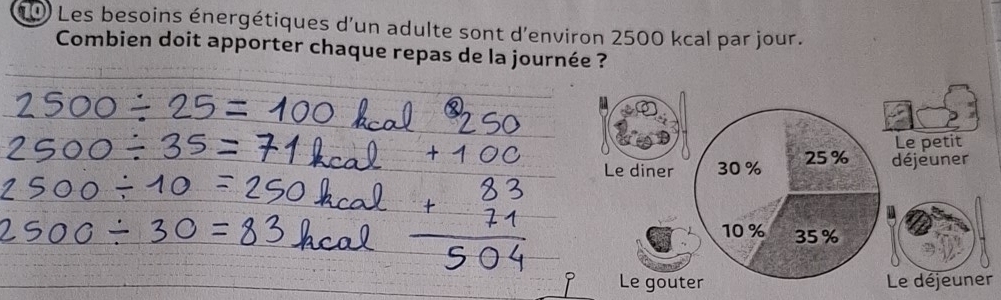 10 Les besoins énergétiques d'un adulte sont d'environ 2500 kcal par jour.
Combien doit apporter chaque repas de la journée ?
2500 ÷ 25 = 100 kcal
2500 ÷ 35 = 71 kcal
2500 ÷ 10 = 250 kcal
2500 ÷ 30 = 83 kcal
② 250
+ 100
+ 83
71
504
Le diner
30 %
25 %
Le petit
déjeuner
10 %
35 %
Le gouter
Le déjeuner